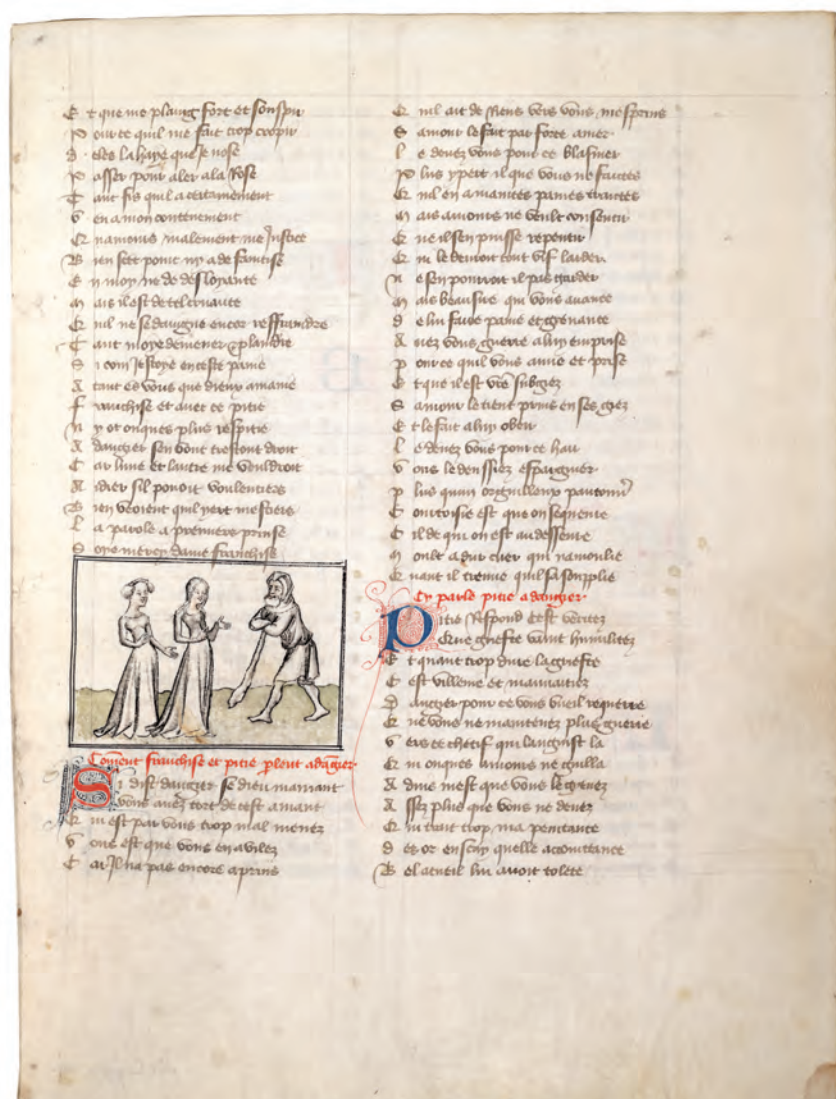 E t que me plaing fort et souspir
P our ce quil me fait trop croupir
D eles la haye que je nose
P asser pour aler ala Rose
T ant fis quil a certainement
V eu a mon contenement
Qu namours malement me Justice
B ien scet point ny a de faintise
E n moy ne de desloyante
M ais il est de tel cruaute
Qu nil ne se daingne encor reffraindre
T ant moye demener & plaindre
S i com Jestoye en ceste paine
A tant es vous que dieux amaine
F ranchise et avec ce pitie
N y ot onques plus respitie
A daugier sen vont trestout droit
C ar lune et lautre me vouldroit
A idier sil povoit voulentiers
B ien veoient quil yert mestiers
L a parole a premiere prinse
S oye mercy dame franchise
Coment franchise et pitie plent a dagier
Si dist daugier se dieu mamant
Vous avez tort de cest amant
Qu i est par vous trop mal menez
V ous est que vous en avilez
C ar Jl na pas encore aprins
Qu nil ait de Riens vers vous mesprins
S amour le fait par force amer
L e devez vous pour ce blasmer
P lus y pert il que vous ne faictes
Qu nil en a maintes paines traictes
M ais amours ne veult consentir
Qu ne il sen puisse repentir
Qu i le devroit tout vif larder
N e sen pourroit il pas garder
M ais beau sire qui vous avance
D e lui faire paine et grevance
A vez vous guerre a luy emprise
P our ce quil vous aime et prise
E t que il est vre subgiez
S amour le tient prins en ses giez
E t le fait a luy obeir
L e devez vous pour ce hair
V ous le deussiez espargnier
P lus quun orguilleux pautonnier
C ourtoisie est que on sequeure
C il de qui on est au desseure
M oult a dur cuer qui namoulie
Qu nant il treuve quil sa souplie
Cy parle pitie a daugier
Pitie Respond cest veritez
Que griefte vaint humilitez
E t quant trop dure la griefte
C est villenie et mauvaitiez
D augier pour ce vous vueil requerre
Qu ne vous ne maintenez plus guerre
V ers ce chetif qui languist la
Qu i onques amours ne guilla
A dvis mest que vous le grevez
A ssez plus que vous ne devez
Qu i trait trop ma penitance
D es or en say quelle accointance
B el acueil lui avoit tolete